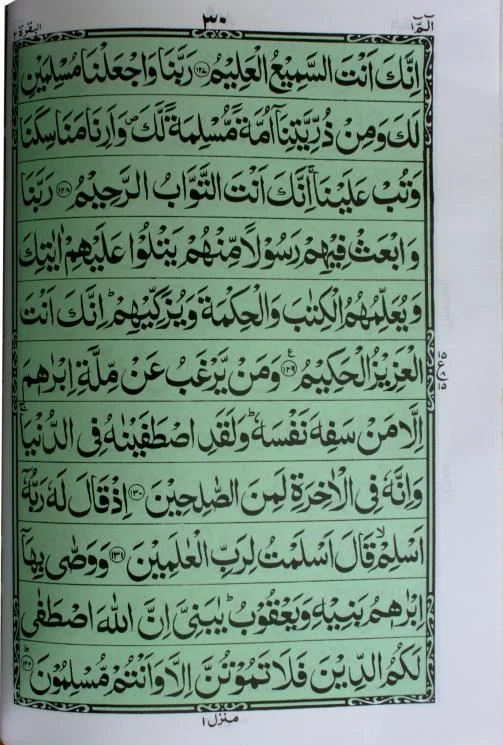 الٓمّٓ ١ ٣٠ البقرة ٢
اِنَّكَ اَنْتَ السَّمِيْعُ الْعَلِيْمُ ﴿١٢٧﴾ رَبَّنَا وَاجْعَلْنَا مُسْلِمَيْنِ
لَكَ وَمِنْ ذُرِّيَّتِنَاۤ اُمَّةً مُّسْلِمَةً لَّكَ ۪ وَاَرِنَا مَنَاسِكَنَا
وَتُبْ عَلَيْنَا ۚ اِنَّكَ اَنْتَ التَّوَّابُ الرَّحِيْمُ ﴿١٢٨﴾ رَبَّنَا
وَابْعَثْ فِيْهِمْ رَسُوْلًا مِّنْهُمْ يَتْلُوْا عَلَيْهِمْ اٰيٰتِكَ
وَيُعَلِّمُهُمُ الْكِتٰبَ وَالْحِكْمَةَ وَيُزَكِّيْهِمْ ؕ اِنَّكَ اَنْتَ
الْعَزِيْزُ الْحَكِيْمُ ﴿١٢٩﴾ ع وَمَنْ يَّرْغَبُ عَنْ مِّلَّةِ اِبْرٰهٖمَ
اِلَّا مَنْ سَفِهَ نَفْسَهٗ ؕ وَلَقَدِ اصْطَفَيْنٰهُ فِى الدُّنْيَا ۚ
وَاِنَّهٗ فِى الْاٰخِرَةِ لَمِنَ الصّٰلِحِيْنَ ﴿١٣٠﴾ اِذْ قَالَ لَهٗ رَبُّهٗۤ
اَسْلِمْ ۙ قَالَ اَسْلَمْتُ لِرَبِّ الْعٰلَمِيْنَ ﴿١٣١﴾ وَوَصّٰى بِهَاۤ
اِبْرٰهٖمُ بَنِيْهِ وَيَعْقُوْبُ ؕ يٰبَنِىَّ اِنَّ اللّٰهَ اصْطَفٰى
لَكُمُ الدِّيْنَ فَلَا تَمُوْتُنَّ اِلَّا وَاَنْتُمْ مُّسْلِمُوْنَ ؕ ﴿١٣٢﴾
منزل ١